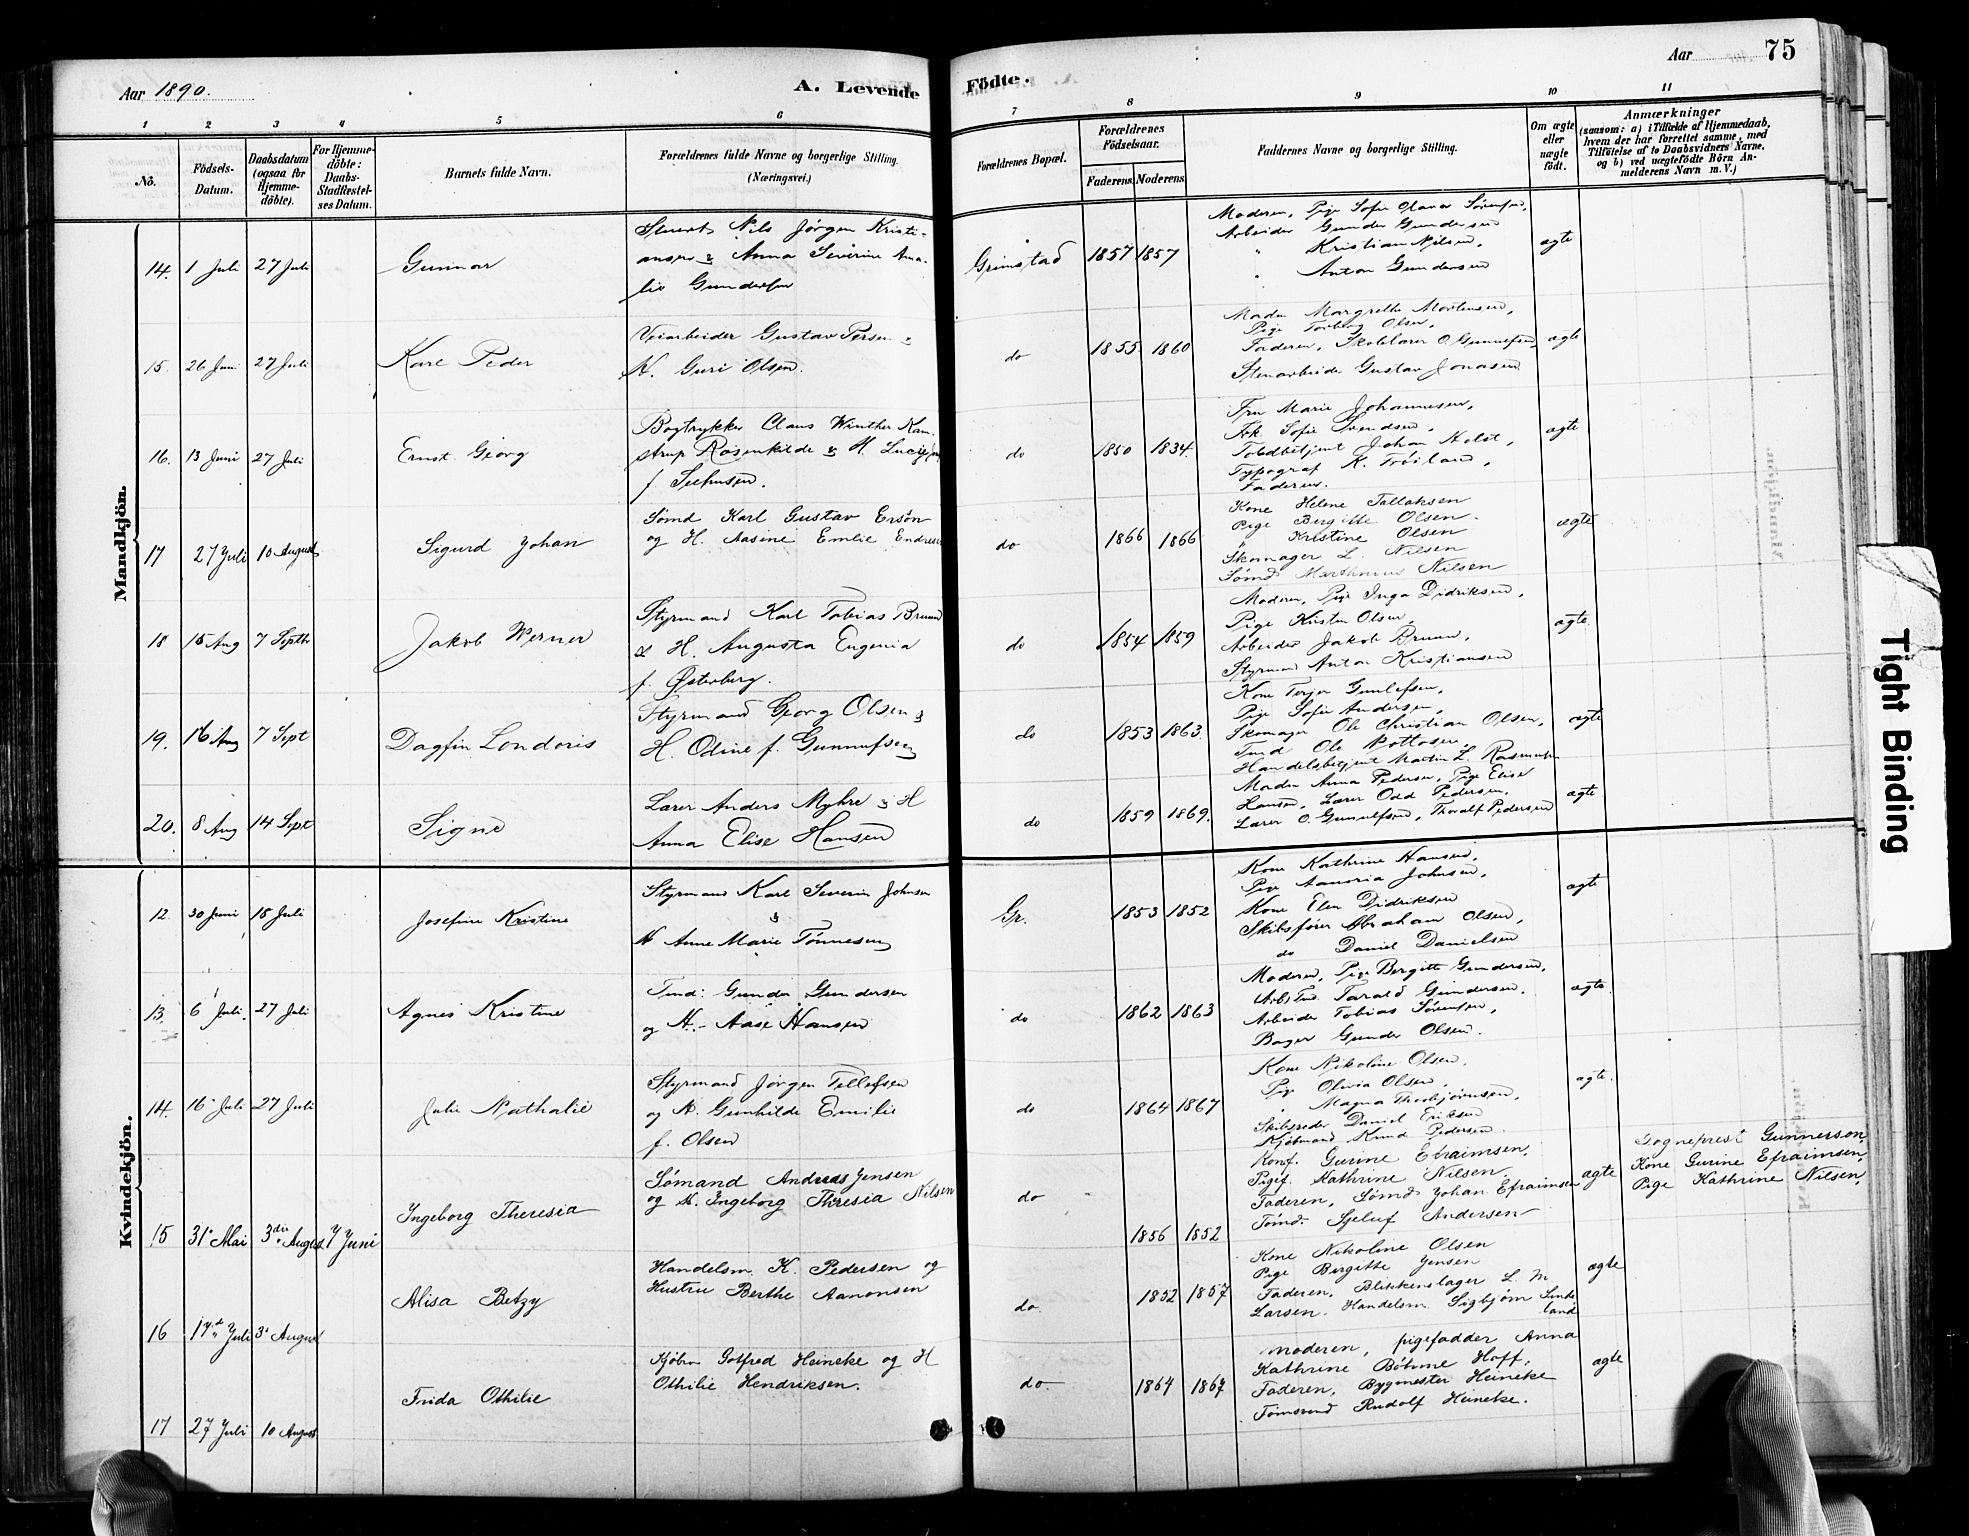 Aar 1890.
A. Levende Födte.
Aar 75
1 2 3 4 5 6 7 8 9 10 11
No.
Födsels-Datum.
Daabsdatum (ogsaa for Hjemme-döbte).
For Hjemme-döbte: Daabs-Stadfæstel-ses Datum.
Barnets fulde Navn.
Forældrenes fulde Navne og borgerlige Stilling.
(Næringsvei.)
Forældrenes Bopæl.
Forældrenes Födselsaar.
Faderens Moderens
Faddernes Navne og borgerlige Stilling.
Om ægte eller uægte födt.
Anmærkninger
(saasom: a) i Tilfælde af Hjemmedaab,
hvem der har forrettet samme, med
Tilföielse af to Daabsvidners Navne,
og b) ved uægtefödte Börn An-
melderens Navn m. V.)
Mandkjön.
14. 1 Juli 27 Juli
Gunnar
Nils Jørgen Kristi-
ansen & Anna Severine Ama-
lie Gundersen
Grimstad 1857 1857
Moderen, Pige Sofie Olava Sørensen,
Arbeider Gunder Gundersen
" Kristian Nilsen,
" Anton Gundersen
ægte
15. 26 Juni 27 Juli
Karl Peder
Veiarbeider Gustav Persen &
H. Guri Olsen.
do 1855 1860
Moder Margrethe Mortensen,
Pige Torborg Olsen,
Faderen, Skolelærer O. Gunnufsen,
Stenarbeider Gustav Jonasen
ægte
16. 13 Juni 27 Juli
Ernst Georg
Bogtrykker Claus Winther Kam-
strup Rosenkilde & H.
f. Seehusen.
do 1850 1834
Fru Marie Johannesen,
Frk. Sofie Svendsen,
Toldbetjent Johan Holst,
Typograf K. Frøiland,
Faderen.
ægte
17 27 Juli 10 August
Sigurd Johan
Sømd Karl Gustav Ersøn
og H. Aasine Emlie Endresen
do 1866 1866
Kone Helene Tallaksen
Pige Birgitte Olsen
" Kristine Olsen
Skomager L. Nilsen
Sømd Marthnius Nilsen
ægte
18 15 Aug 7 Septb
Jakob Werner
Styrmand Karl Tobias Bruun
& H. Augusta Eugenia
f. Østerberg.
do 1854 1859
Moderen, Pige Inga Didriksen,
Pige Kirsten Olsen,
Arbeider Jakob Bruun,
Styrmand Anton Kristiansen
ægte
19. 16 Aug 7 Sept
Dagfin Londoris
Styrmand Georg Olsen &
H. Odine f. Gunnufsen
do 1853 1863
Kone Terjer Gunlefsen,
Pige Sofie Andersen,
Skomager Ole Christian Olsen,
Tmd Ole
Handelsbetjent Martin L. Rasmussen
ægte
20. 8 Aug 14 Sept
Signe
Lærer Anders Myhre & H
Anna Elise Hansen
do 1859 1869.
Moder Anna Pedersen, Pige Elise
Hansen, Lærer Odd Pedersen,
Lærer O. Gunnufsen, Thoralf Pedersen
ægte
Kvindekjön.
12. 30 Juni 18 Juli
Josefine Kristine
Styrmand Karl Severin Johnsen
&
H Anne Marie Tønnesen
Gr. 1853 1852
Kone Kathrine Hansen,
Pige Johnsen,
Kone Elen Didriksen
Skibsfører Abraham Olsen,
do Daniel Danielsen
ægte
13. 6 Juli. 27 Juli
Agnes Kristine
Tmd: Gunder Gundersen
og H. Aase Hansen
do 1862 1863
Moderen, Pige Bergitte Gundersen,
Tarald Gundersen,
Arbeider Tobias Sørensen,
Bager Gunder Olsen.
ægte
14. 16 Juli 27 Juli
Julie Nathalie
Styrmand Jørgen Tellefsen
og H. Gunhilde Emilie
f. Olsen
do 1864 1867
Kone Nikoline Olsen,
Pige Olivia Olsen,
" Magna Thorbjørnsen,
Skibsreder Daniel Eriksen
Kjøbmand Knud Pedersen.
ægte.
15 31te Mai 3die August 7 Juni
Ingeborg Theresia
Sømand Andreas Jensen
og H. Ingeborg Theresia Nilsen
do 1856 1852
Konf. Gurine Efraimsen,
Pigef. Kathrine Nilsen,
Faderen, Sømd Johan Efraimsen
Tømd. Sjeluf Andersen
ægte
Sogneprest Gunnerson,
Kone Gurine Efraimsen,
Pige Kathrine Nilsen,
16 17de Juli 3 August
Alisa Betzy
Handelsm. K. Pedersen og
Hustru Berthe Aanonsen
do. 1852 1857
Kone Nikoline Olsen
Pige Birgitte Jensen
Faderen, Blikkenslager L. M
Larsen. Handelsm. Sigbjørn Linde
land
ægte
17 27 Juli 10 August
Frida Othilie
Kjøbm Gotfred Heineke og H
Othilie Hendriksen.
do. 1864 1867
Moderen, pigefadder Anna
Kathrine Böhme Hoff,
Faderen, Bygmester Heineke
Tømsvend Rudolf Heineke.
ægte
Tight Binding